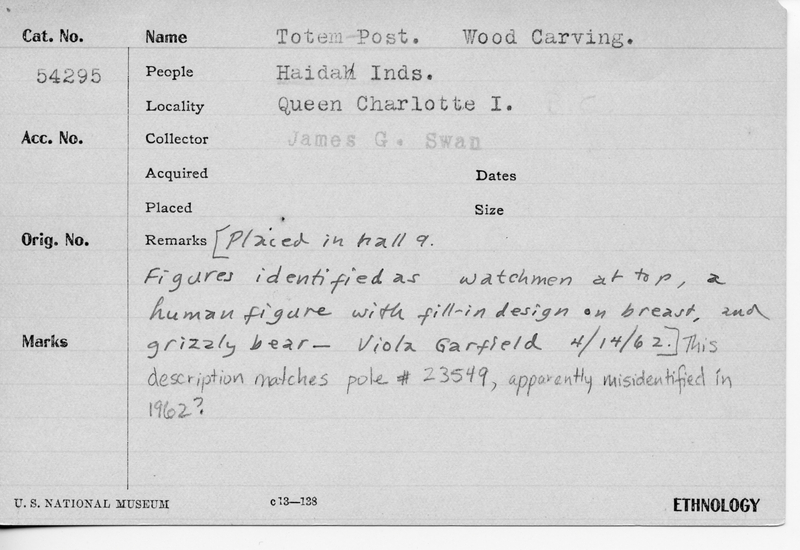 Cat. No. Name Totem Post. Wood Carving.
54295 People Haidah Inds.
Locality Queen Charlotte I. B.C.
Acc. No. Collector James G. Swan
Acquired Dates
Placed Size
Orig. No. Remarks [Placed in hall 9.
Figures identified as watchmen at top, a
human figure with fill-in design on breast, and
Marks grizzly bear — Viola Garfield 4/14/62.] This
description matches pole # 23549, apparently misidentified in
1962?
U. S. NATIONAL MUSEUM c13—138 ETHNOLOGY